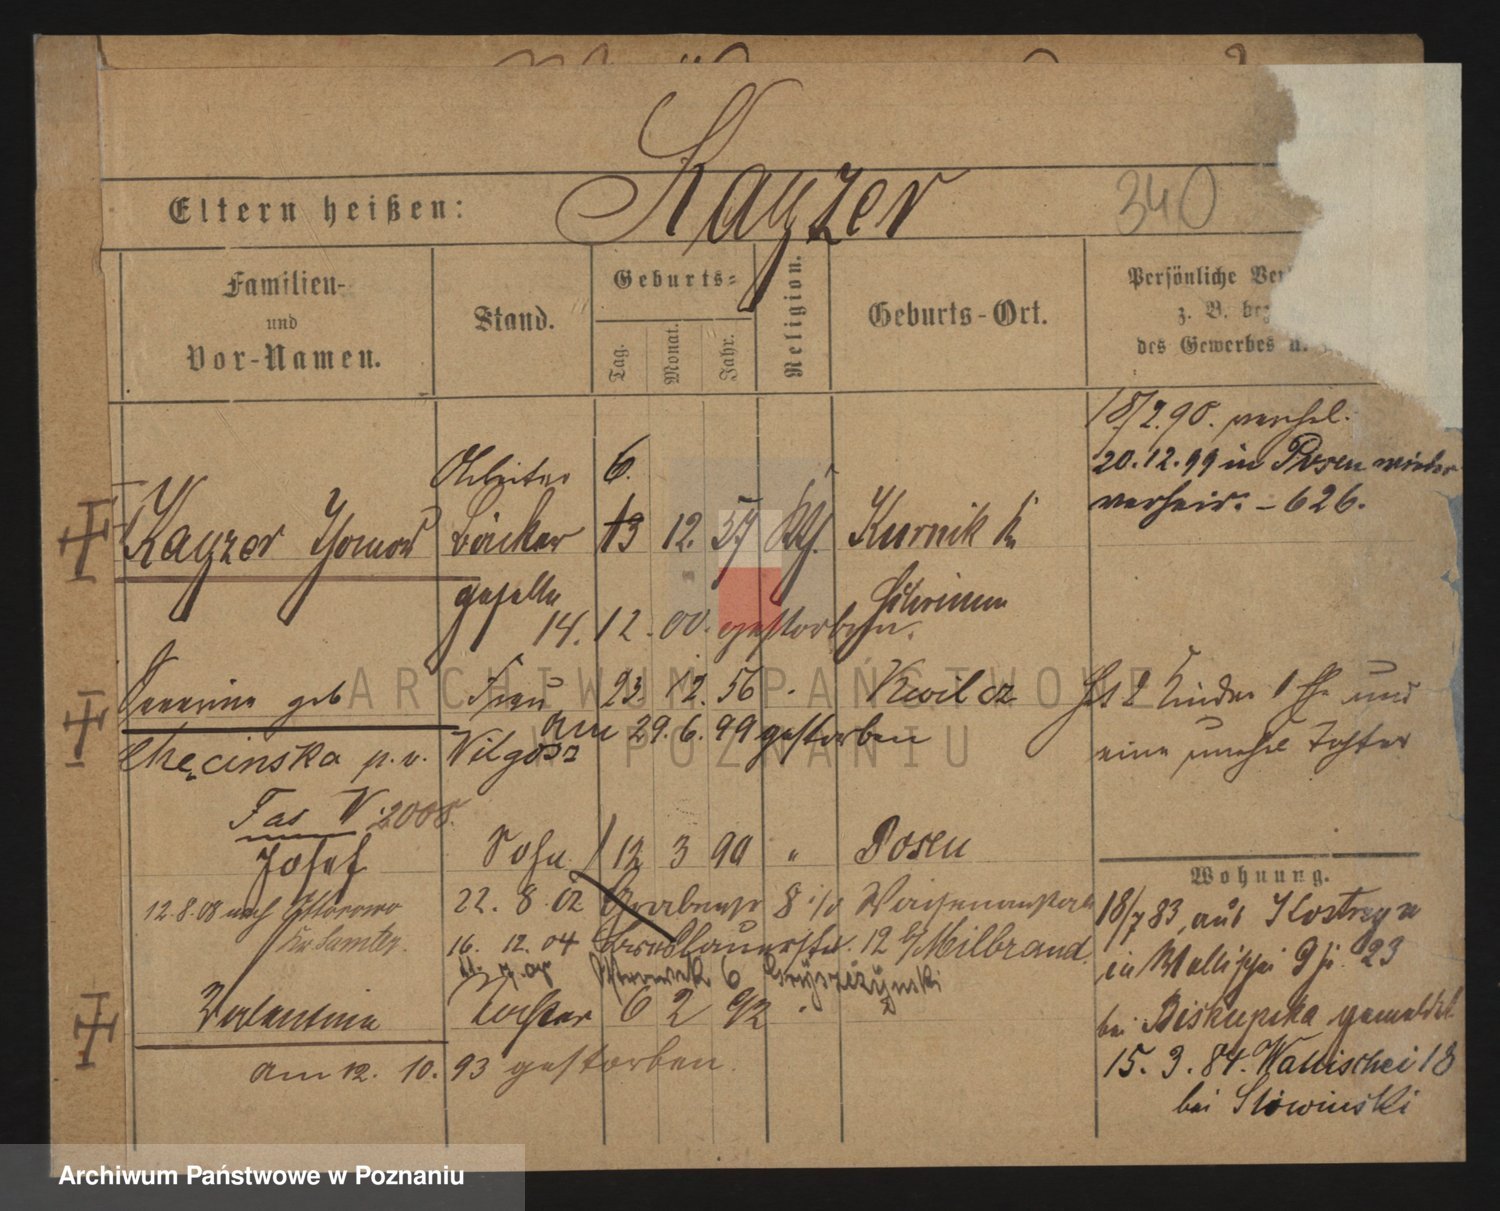 Kayzer
340
Eltern heißen:
Familien-
und
Vor-Namen.
Stand.
Geburts-
Tag.
Monat.
Jahr.
Religion.
Geburts-Ort.
Persönliche
z. B.
des Gewerbes u.
18/7.90. verehel.
20.12.99 in Posen wieder
verheir. - 626.
Arbeiter 6.
Kayzer Thomas Bäcker 13 12. 57 Kth. Kurnik Kr.
geselle Schrimm
14. 12. 00. gestorben.
geb Frau 23 12. 56 Kwilcz
Hat 2 Kinder 1 Ehe und
am 29. 6. 99 gestorben
Chęcinska p. v. Vilgosz
eine unehel Tochter
Fas V. 2008.
Josef Sohn 12 3 90 " Posen
Wohnung.
12.8.08 nach Ottorowo
Kr Samter.
22. 8. 02 Grabenstr 8 Waisenanstalt
16. 12. 04 Breslauerstr. 12 b/ Milbrand.
6
Valentine Tochter 6 2 92
am 12. 10. 93 gestorben.
18/7 83, aus Kostrzyn
in Wallischei 9 b. 23
bei Biskupska gemeldet
15. 3. 84. Wallischei 18
bei Slowinski
ARCHIWUM PAŃSTWOWE
W POZNANIU
Archiwum Państwowe w Poznaniu